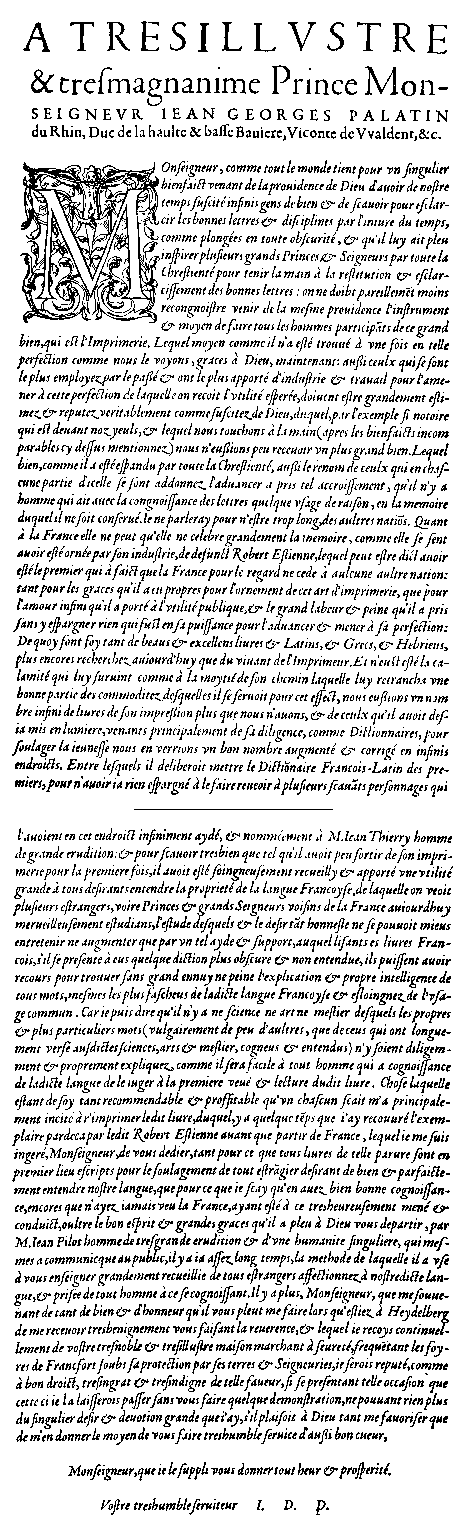 A TRESILLVSTRE
& tresmagnanime Prince Mon-
SEIGNEVR IEAN GEORGES PALATIN
du Rhin, Duc de la haulte & basse Bauiere, Viconte de Vvaldent, &c.
MOnseigneur, comme tout le monde tient pour vn singulier
bienfaict venant de la prouidence de Dieu d'auoir de nostre
temps suscité infinis gens de bien & de scauoir pour esclar-
cir les bonnes lettres & disciplines par l'iniure du temps,
comme plongées en toute obscurité, & qu'il luy ait pleu
inspirer plusieurs grands Princes & Seigneurs par toute la
Chrestienté pour tenir la main à la restitution & esclar-
cissement des bonnes lettres : on ne doibt pareillemẽt moins
recongnoistre venir de la mesme preuidence l'instrument
& moyen de faire tous les hommes participãts de ce grand
bien, qui est l'Imprimerie. Lequel moyen comme il n'a esté trouué à vne fois en telle
perfection comme nous le voyons, graces à Dieu, maintenant: aussi ceulx qui se sont
le plus employez par le passé & ont le plus apporté d'industrie & trauail pour l'ame-
ner à cette perfection de laquelle on recoit l'vtilité esperée, doiuent estre grandement esti-
mez & reputez veritablement comme suscitez de Dieu, duquel, par l'exemple si notoire
qui est deuant noz yeuls, & lequel nous touchons à la main (apres les bienfaicts incom
parables cy dessus mentionnez) nous n'eussions peu receuoir vn plus grand bien. Lequel
bien, comme il a esté espandu par toute la Chrestienté, aussi le renom de ceulx qui en chas-
cune partie d'icelle se sont addonnez l'aduancer a pris tel accroissement, qu'il n'y a
homme qui ait auec la congnoissance des lettres quelque vsage de raison, en la memoire
duquel il ne soit conserué. Ie ne parleray pour n'estre trop long, des aultres natiõs. Quant
à la France elle ne peut qu'elle ne celebre grandement la memoire, comme elle se sent
auoir esté ornée par son industrie, de defunct Robert Estienne, lequel peut estre dict auoir
esté le premier qui à faict que la France pour le regard ne cede à aulcune aultre nation:
tant pour les graces qu'il a eu propres pour l'ornement de cet art d'imprimerie, que pour
l'amour infini qu'il a porté à l'vtilité publique, & le grand labeur & peine qu'il a pris
sans y espargner rien qui fust en sa puissance pour l'aduancer & mener à sa perfection:
De quoy font foy tant de beaus & excellens liures & Latins, & Grecs, & Hebriens,
plus encores recherchez auiourd'huy que du viuant de l'Imprimeur. Et n'eust esté la ca-
lamité qui luy suruint comme à la moytié de son chemin laquelle luy retrancha vne
bonne partie des commoditez desquelles il se seruoit pour cet effect, nous eussions vn nom
bre infini de liures de son impression plus que nous n'auons, & de ceulx qu'il auoit des-
ia mis en lumiere, venants principalement de sa diligence, comme Dictionnaires, pour
soulager la ieunesse nous en verrions vn bon nombre augmenté & corrigé en infinis
endroicts. Entre lesquels il deliberoit mettre le Dictiõnaire Francois-Latin des pre-
miers, pour n'auoir ia rien espargné à le faire reuoir à plusieurs scauãts personnages qui
l'auoient en cet endroict infiniment aydé, & nommément à M. Iean Thierry homme
de grande erudition: & pour scauoir tresbien que tel qu'il auoit peu sortir de son impri-
merie pour la premiere fois, il auoit esté soingneusement recueilly & apporté vne vtilité
grande à tous desirants entendre la proprieté de la langue Francoyse, de laquelle on veoit
plusieurs estrangers, voire Princes & grands Seigneurs voisins de la France auiourdhuy
merueilleusement estudians, l'estude desquels & le desir tãt honneste ne se pouuoit mieus
entretenir ne augmenter que par vn tel ayde & support, auquel lisants es liures Fran-
cois, s'il se presente à eus quelque diction plus obscure & non entendue, ils puissent auoir
recours pour trouuer sans grand ennuy ne peine l'explication & propre intelligence de
tous mots, mesmes les plus fascheus de ladicte langue Francoyse & esloingnez de l'vsa-
ge commun. Car ie puis dire qu'il n'y a ne science ne art ne mestier desquels les propres
& plus particuliers mots (vulgairement de peu d'aultres, que de ceus qui ont longue-
ment versé ausdictes sciences, arts & mestier, cogneus & entendus) n'y soient diligem-
ment & proprement expliquez, comme il sera facile à tout homme qui a cognoissance
de ladicte langue de le iuger à la premiere veuë & lecture dudit liure. Chose laquelle
estant de soy tant recommendable & proffitable qu'vn chascun scait m'a principale-
ment incité à r'imprimer ledit liure, duquel, y a quelque tẽps que i'ay recouuré l'exem-
plaire pardeça par ledit Robert Estienne auant que partir de France, lequel ie me suis
ingeré, Monseigneur, de vous dedier, tant pour ce que tous liures de telle parure sont en
premier lieu escripts pour le soulagement de tout estrãgier desirant de bien & parfaicte-
ment entendre nostre langue, que pour ce que ie scay qu'en auez bien bonne cognoissan-
ce, encores que n'ayez iamais veu la France, ayant esté à ce tresheureusement mené &
conduict, oultre le bon esprit & grandes graces qu'il a pleu à Dieu vous departir, par
M. Iean Pilot homme de tresgrande erudition & d'vne humanite singuliere, qui mes-
mes a communicque au public, il y a ia assez long temps, la methode de laquelle il a vsé
à vous enseigner grandement recueillie de tous estrangers affectionnez à nostredicte lan-
gue, & prisée de tout homme à ce se cognoissant. Il y a plus, Monseigneur, que me souue-
nant de tant de bien & d'honneur qu'il vous pleut me faire lors qu'estiez à Heydelberg
de me receuoir tresbenignement vous faisant la reuerence, & lequel ie recoys continuel-
lement de vostre tresnoble & tresillustre maison marchant à seureté, frequẽtant les foy-
res de Francfort soubs sa protection par ses terres & Seigneuries, ie serois reputé, comme
à bon droict, tresingrat & tresindigne de telle faueur, si se presentant telle occasion que
cette ci ie la laisserois passer sans vous faire quelque demonstration, ne pouuant rien plus
du singulier desir & deuotion grande que i'ay, s'il plaisoit à Dieu tant me fauoriser que
de m'en donner le moyen de vous faire treshumble seruice d'aussi bon cueur,
Monseigneur, que ie le suppli vous donner tout heur & prosperité.
Vostre treshumble seruiteur I. D. P.